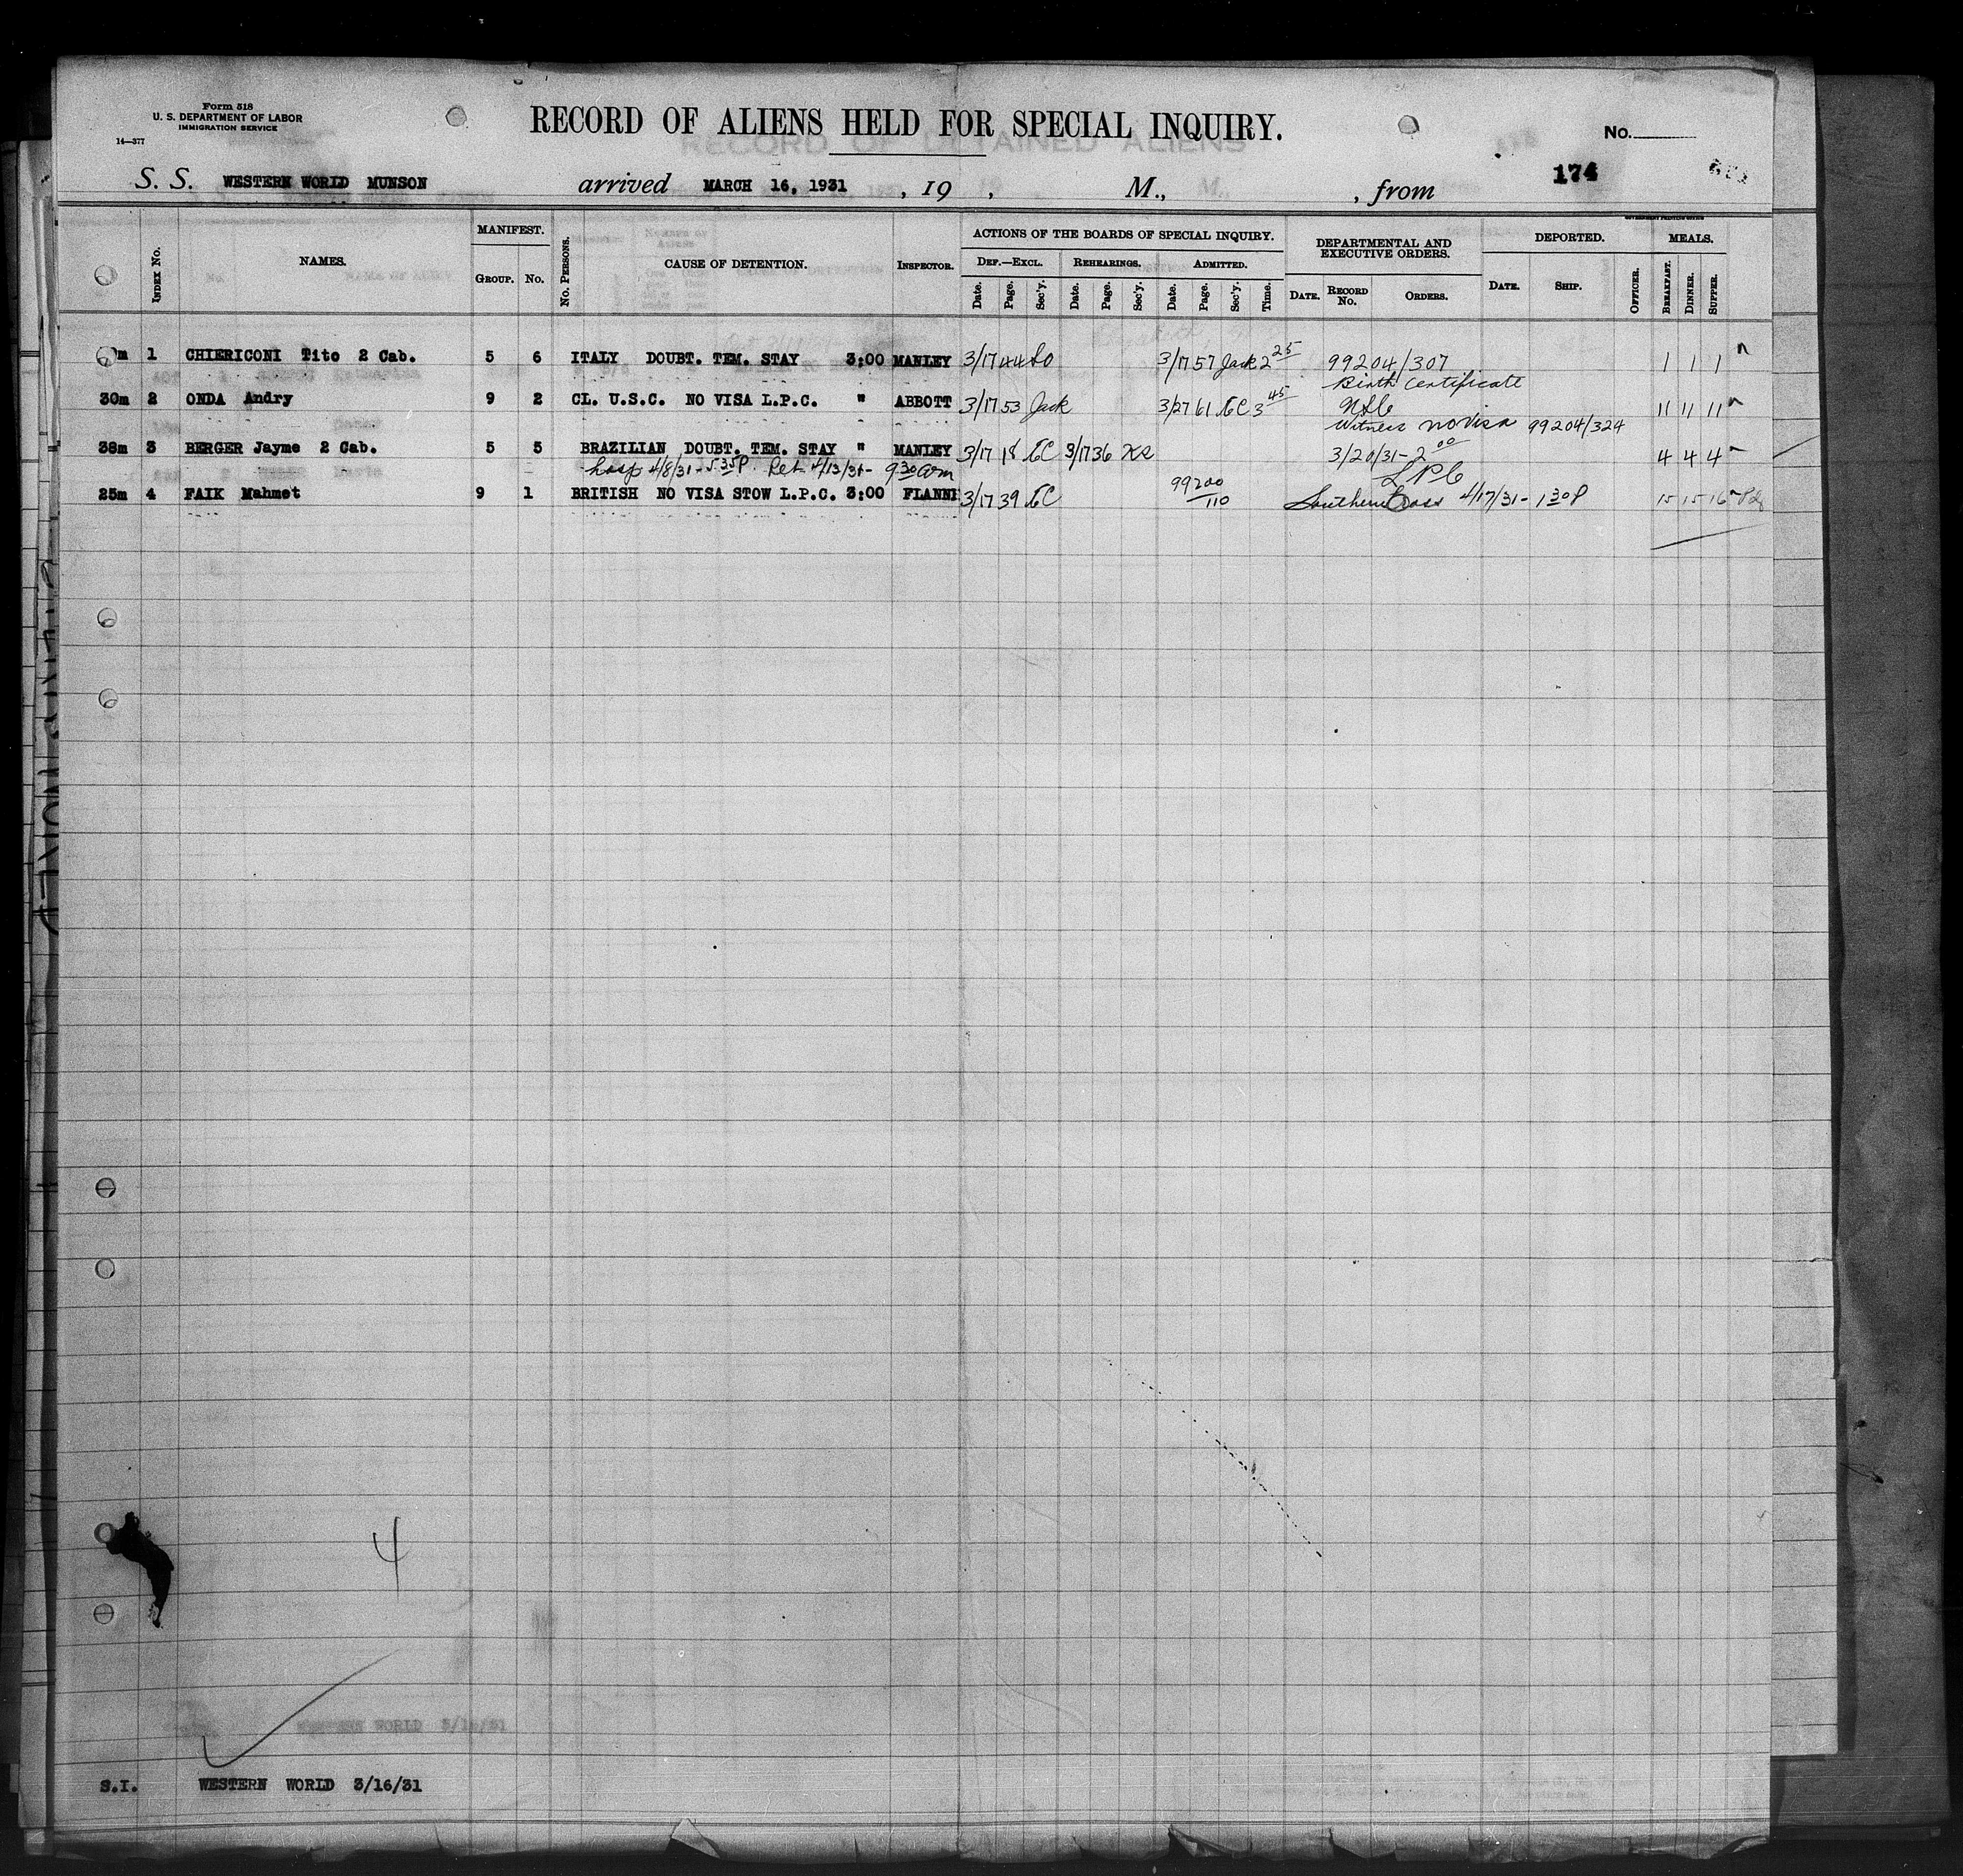 Form 518
U. S. DEPARTMENT OF LABOR
IMMIGRATION SERVICE
14—377
RECORD OF ALIENS HELD FOR SPECIAL INQUIRY.
No.
174
S. S. WESTERN WORLD MUNSON arrived MARCH 16, 1931 , 19 , M., , from
INDEX No. NAMES. MANIFEST. GROUP. No. No. PERSONS. CAUSE OF DETENTION. INSPECTOR.
ACTIONS OF THE BOARDS OF SPECIAL INQUIRY.
DEF.—EXCL. REHEARINGS. ADMITTED.
Date. Page. Sec'y. Date. Page. Sec'y. Date. Page. Sec'y. Time.
DEPARTMENTAL AND EXECUTIVE ORDERS.
DATE. RECORD No. ORDERS.
DEPORTED.
DATE. SHIP. OFFICER.
MEALS.
BREAKFAST. DINNER. SUPPER.
m 1 CHIERICONI Tito 2 Cab. 5 6 ITALY DOUBT. TEM. STAY 3:00 MANLEY 3/17 44 3/17 57 Jack 2 25 99204/307 1 1 1
Birth Certificate
30m 2 ONDA Andry 9 2 CL. U.S.C. NO VISA L.P.C. " ABBOTT 3/17 53 Jack 3/27 61 EC 3 45 11 11 11
Witness no visa 99204/324
38m 3 BERGER Jayme 2 Cab. 5 5 BRAZILIAN DOUBT. TEM. STAY " MANLEY 3/17 18 EC 3/17 36 3/20/31 - 2 00 4 4 4
hosp 4/8/31 - 5 35 P. Ret 4/13/31 - 9 30 am
LPC
25m 4 FAIK Mahmet 9 1 BRITISH NO VISA STOW L.P.C. 3:00 FLANNE 3/17 39 EC 99200/110 Southern Cross 4/17/31 - 1 30 P 15 15 16
4
S.I. WESTERN WORLD 3/16/31